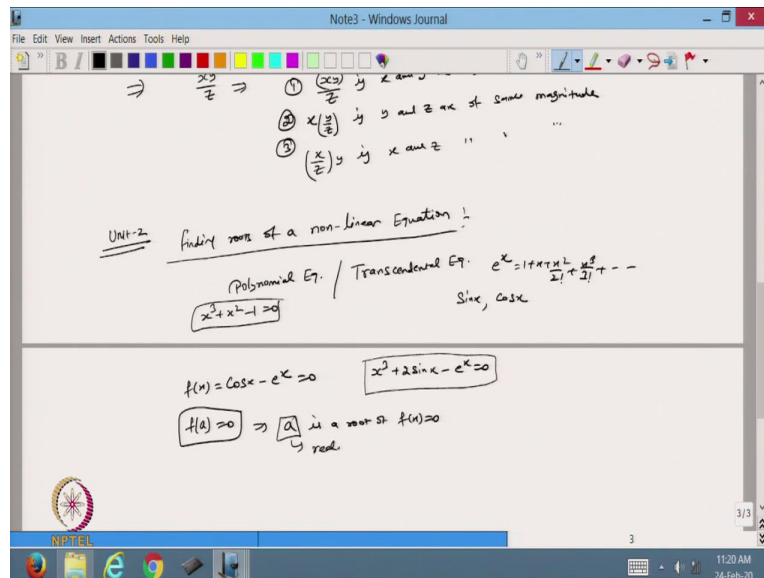 Note3 - Windows Journal
File Edit View Insert Actions Tools Help
B I
⇒ xy/z ⇒ ① (xy)/z if x and y
② x(y/z) if y and z are of same magnitude
③ (x/z)y if x and z " " "
Unit-2 Finding roots of a non-linear Equation :
Polynomial Eq. / Transcendental Eq. e^x = 1+x+x^2/2!+x^3/3!+ - -
x^3+x^2-1=0 Sinx, Cosx
f(x) = Cosx - e^x = 0 x^3+2sinx-e^x=0
f(a)=0 ⇒ a is a root of f(x)=0
↳ real
NPTEL
3/3
3
11:20 AM
24-Feb-20